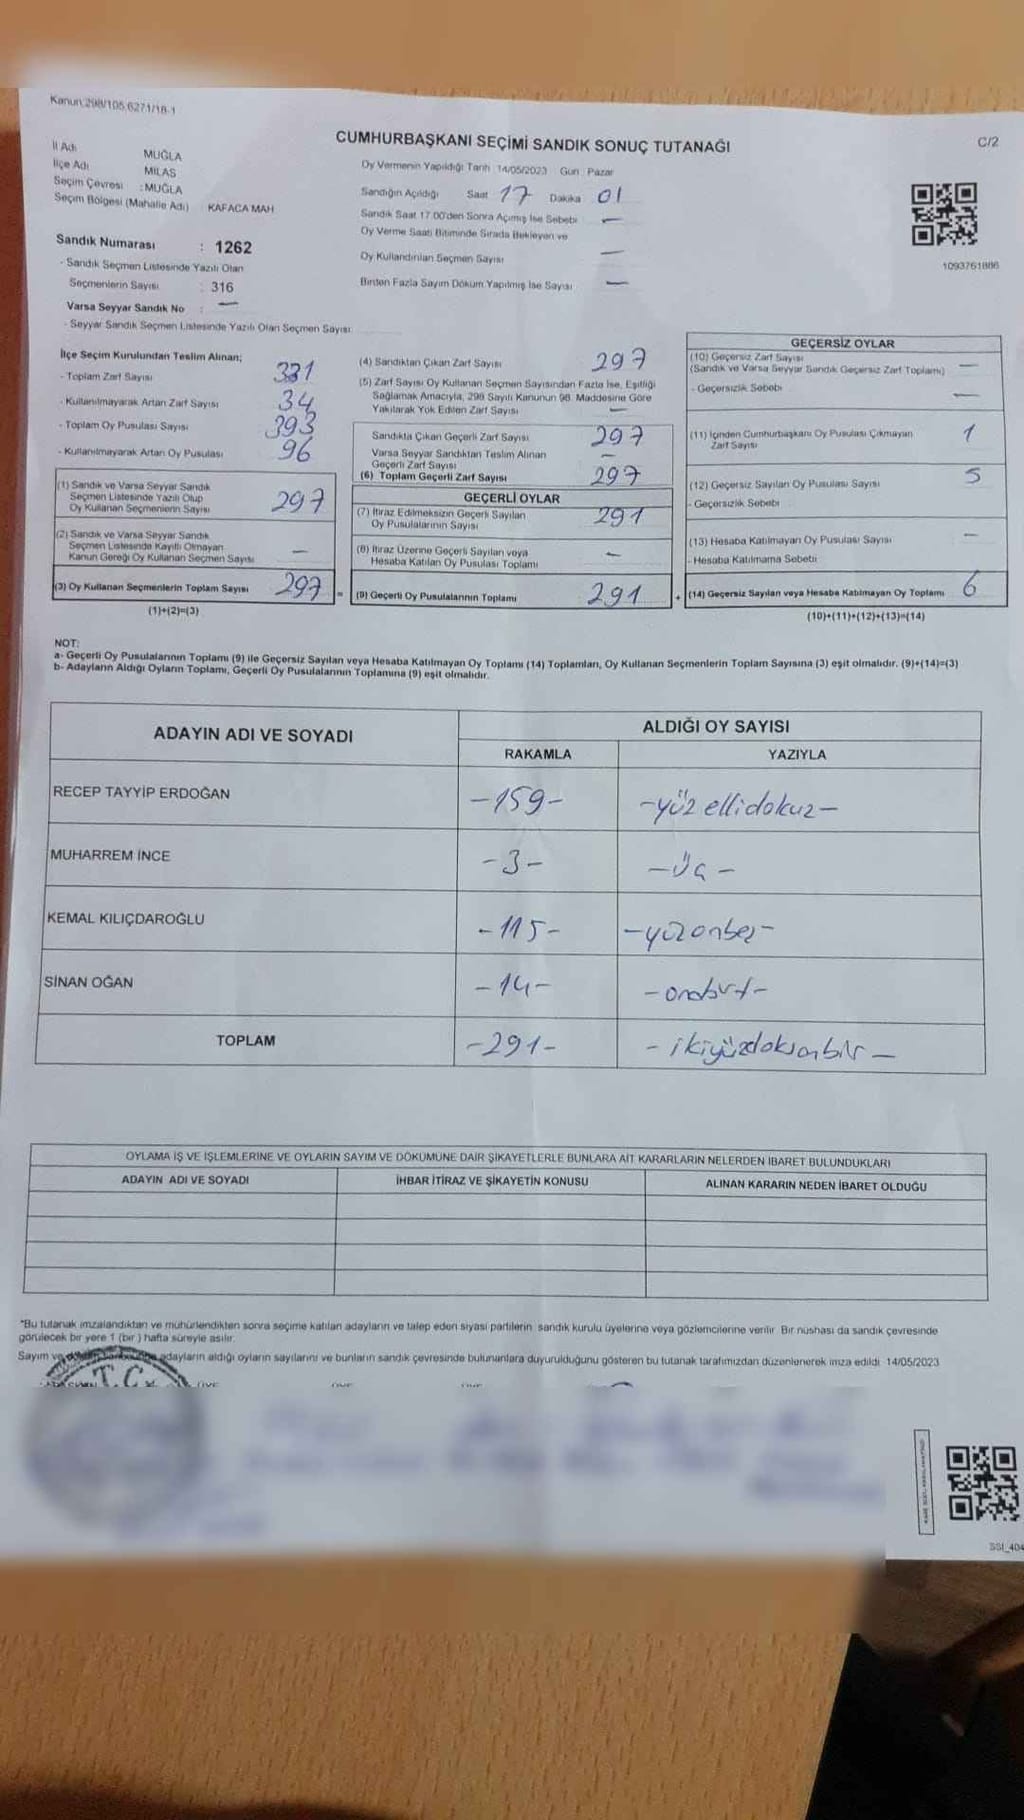 Kanun:298/105,6271/18-1
CUMHURBAŞKANI SEÇİMİ SANDIK SONUÇ TUTANAĞI
C/2
İl Adı MUĞLA
İlçe Adı MİLAS
Seçim Çevresi :MUĞLA
Seçim Bölgesi (Mahalle Adı) KAFACA MAH
Oy Vermenin Yapıldığı Tarih 14/05/2023 Gün Pazar
Sandığın Açıldığı Saat 17 Dakika 01
Sandık Saat 17.00'den Sonra Açımış İse Sebebi —
Oy Verme Saati Bitiminde Sırada Bekleyen ve
Oy Kullandırılan Seçmen Sayısı —
Birden Fazla Sayım Döküm Yapılmış İse Sayısı —
1093761886
Sandık Numarası : 1262
- Sandık Seçmen Listesinde Yazılı Olan
Seçmenlerin Sayısı : 316
Varsa Seyyar Sandık No : —
- Seyyar Sandık Seçmen Listesinde Yazılı Olan Seçmen Sayısı:
İlçe Seçim Kurulundan Teslim Alınan;
- Toplam Zarf Sayısı 331
- Kullanılmayarak Artan Zarf Sayısı 34
- Toplam Oy Pusulası Sayısı 393
- Kullanılmayarak Artan Oy Pusulası 96
(1) Sandık ve Varsa Seyyar Sandık
Seçmen Listesinde Yazılı Olup
Oy Kullanan Seçmenlerin Sayısı 297
(2) Sandık ve Varsa Seyyar Sandık
Seçmen Listesinde Kayıtlı Olmayan
Kanun Gereği Oy Kullanan Seçmen Sayısı —
(3) Oy Kullanan Seçmenlerin Toplam Sayısı 297 =
(1)+(2)=(3)
(4) Sandıktan Çıkan Zarf Sayısı 297
(5) Zarf Sayısı Oy Kullanan Seçmen Sayısından Fazla İse, Eşitliği
Sağlamak Amacıyla, 298 Sayılı Kanunun 98. Maddesine Göre
Yakılarak Yok Edilen Zarf Sayısı —
Sandıkta Çıkan Geçerli Zarf Sayısı 297
Varsa Seyyar Sandıktan Teslim Alınan
Geçerli Zarf Sayısı —
(6) Toplam Geçerli Zarf Sayısı 297
GEÇERLİ OYLAR
(7) İtiraz Edilmeksizin Geçerli Sayılan
Oy Pusulalarının Sayısı 291
(8) İtiraz Üzerine Geçerli Sayılan veya
Hesaba Katılan Oy Pusulası Toplamı —
(9) Geçerli Oy Pusulalarının Toplamı 291 +
GEÇERSİZ OYLAR
(10) Geçersiz Zarf Sayısı
(Sandık ve Varsa Seyyar Sandık Geçersiz Zarf Toplamı) —
- Geçersizlik Sebebi —
(11) İçinden Cumhurbaşkanı Oy Pusulası Çıkmayan
Zarf Sayısı 1
(12) Geçersiz Sayılan Oy Pusulası Sayısı 5
- Geçersizlik Sebebi
(13) Hesaba Katılmayan Oy Pusulası Sayısı —
- Hesaba Katılmama Sebebi
(14) Geçersiz Sayılan veya Hesaba Katılmayan Oy Toplamı 6
(10)+(11)+(12)+(13)=(14)
NOT:
a- Geçerli Oy Pusulalarının Toplamı (9) ile Geçersiz Sayılan veya Hesaba Katılmayan Oy Toplamı (14) Toplamları, Oy Kullanan Seçmenlerin Toplam Sayısına (3) eşit olmalıdır. (9)+(14)=(3)
b- Adayların Aldığı Oyların Toplamı, Geçerli Oy Pusulalarının Toplamına (9) eşit olmalıdır.
ADAYIN ADI VE SOYADI
ALDIĞI OY SAYISI
RAKAMLA YAZIYLA
RECEP TAYYİP ERDOĞAN -159- -yüz ellidokuz-
MUHARREM İNCE -3- -üç-
KEMAL KILIÇDAROĞLU -115- -yüzonbeş-
SİNAN OĞAN -14- -ondört-
TOPLAM -291- -ikiyüzdoksanbir-
OYLAMA İŞ VE İŞLEMLERİNE VE OYLARIN SAYIM VE DÖKÜMÜNE DAİR ŞİKAYETLERLE BUNLARA AİT KARARLARIN NELERDEN İBARET BULUNDUKLARI
ADAYIN ADI VE SOYADI İHBAR İTİRAZ VE ŞİKAYETİN KONUSU ALINAN KARARIN NEDEN İBARET OLDUĞU
"Bu tutanak imzalandıktan ve mühürlendikten sonra seçime katılan adayların ve talep eden siyasi partilerin sandık kurulu üyelerine veya gözlemcilerine verilir. Bir nüshası da sandık çevresinde
görülecek bir yere 1 (bir) hafta süreyle asılır.
Sayım ve adayların aldığı oyların sayılarını ve bunların sandık çevresinde bulunanlara duyurulduğunu gösteren bu tutanak tarafımızdan düzenlenerek imza edildi. 14/05/2023
T.C.
SSI_404